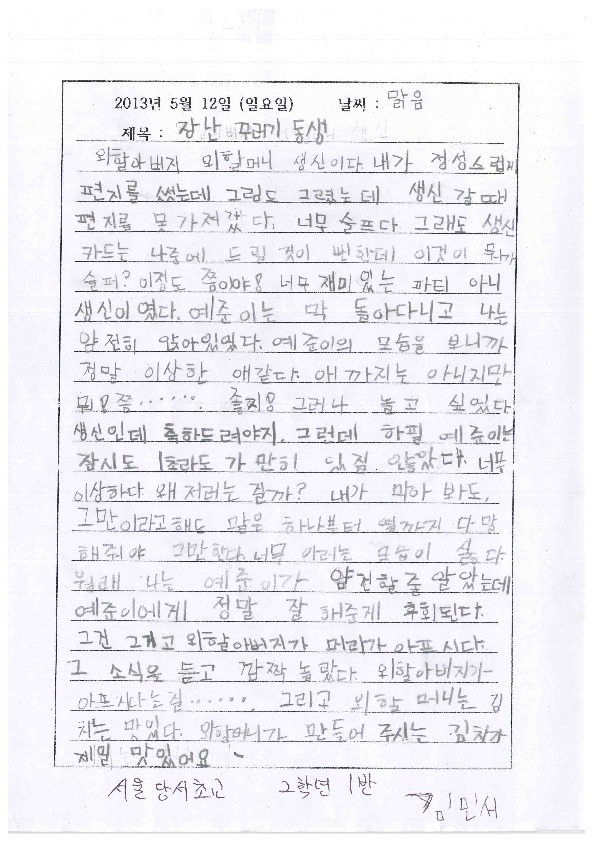 2013년 5월 12일 (일요일) 날씨 : 맑음
제목 : 장난 꾸러기 동생
외할아버지 외할머니 생신이다. 내가 정성스럽게
편지를 썼는데 그림도 그렸는데 생신 갈 때
편지를 못 가져갔다. 너무 슬프다. 그래도 생신
카드는 나중에 드릴 것이 뻔한데 이것이 뭐가
슬퍼? 이정도 쯤이야! 너무 재미있는 파티 아니
생신이였다. 예준이는 막 돌아다니고 나는
얌전히 앉아있었다. 예준이의 모습을 보니까
정말 이상한 애같다. 애 까지는 아니지만
뭐! 쯤······. 그러나 놀고 싶었다
생신인데 축하드려야지. 그런데 하필 예준이는
잠시도 1초라도 가만히 있질 않았다. 너무
이상하다 왜 저러는 걸까? 내가 막아 봐도,
그만이라고해도 말은 하나부터 열까지 다 말
해줘야 그만한다. 너무 이러는 모습이 싫다
원래 나는 예준이가 얌전할 줄 알았는데
예준이에게 정말 잘 해준게 후회된다.
그건 그렇고 외할아버지가 머리가 아프시다.
그 소식을 듣고 깜짝 놀랐다. 외할아버지가
아프시다는걸······. 그리고 외할머니는 김
치는 맛있다. 외할머니가 만들어 주시는 김치가
제일 맛있어요~
서울당서초교 2학년 1반 김민서